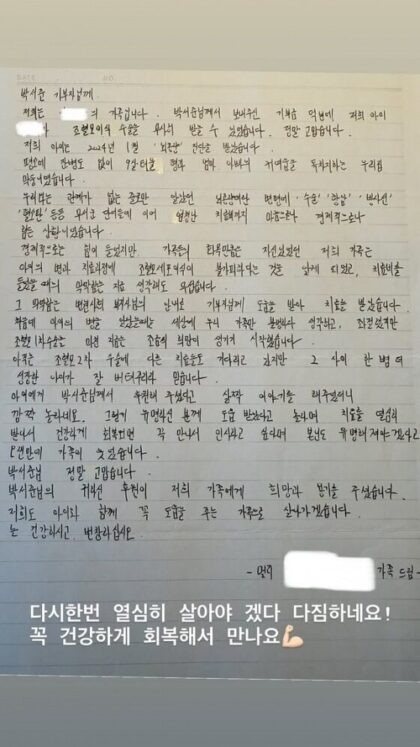 DATE NO.
박서준 기부자님께
저희는 의 가족입니다. 박서준님께서 보내주신 기부금 덕분에 저희 아이
조혈모이식 수술을 무사히 받을 수 있었습니다. 정말 고맙습니다.
저희 아이는 2024년 1월 '뇌종양' 진단을 받았습니다.
평소에 한번도 없이 형과 엄마 아빠의 사랑을 독차지하는 우리집
막둥이였습니다.
우리와는 관계가 없는 줄로만 알았던 뇌종양이란 병명에 '수술' '항암' '방사선'
등등 무서운 단어들에 이어 치료까지 마음으로나 경제적으로나
힘든 상황이었습니다.
경제적으로는 힘이 들었지만, 가족들의 회복만큼은 자신있었던 저희 가족은
아이의 병과 치료과정에 조혈모세포이식이 불가피하다는 것을 알게 되었고, 치료비를
들었을 때의 막막함은 지금 생각해도 무섭습니다.
그 막막함은 병원사회복지사님의 안내로 기부자님께 도움을 받아 치료를 받았습니다.
처음에 아이의 병을 알았을때는 세상에 우리 가족만 불행하다 생각하고, 좌절했지만
조혈 1차수술을 마친 지금은 조금씩 희망이 생기기 시작했습니다.
아직은 조혈모 2차 수술에 다른 치료들도 기다리고 있지만 그 사이 한 뼘 더
성장한 아이가 잘 버텨주리라 믿습니다.
아이에게 박서준님께서 후원해 주셨다고 살짝 이야기를 해주었더니
깜짝 놀라네요. 그렇게 유명하신 분께 도움 받았다고 놀라며 치료를 열심히
받아서 건강하게 회복되면 꼭 만나서 인사하고 싶다며 본인도 유명해져야겠다고
오랜만에 가족이 웃었습니다.
박서준님 정말 고맙습니다.
박서준님의 귀하신 후원이 저희 가족에게 희망과 용기를 주셨습니다.
저희도 아이와 함께 꼭 도움을 주는 가족으로 살아가겠습니다.
늘 건강하시고 번창하십시오.
가족 드림-
다시한번 열심히 살아야 겠다 다짐하네요!
꼭 건강하게 회복해서 만나요💪🏻